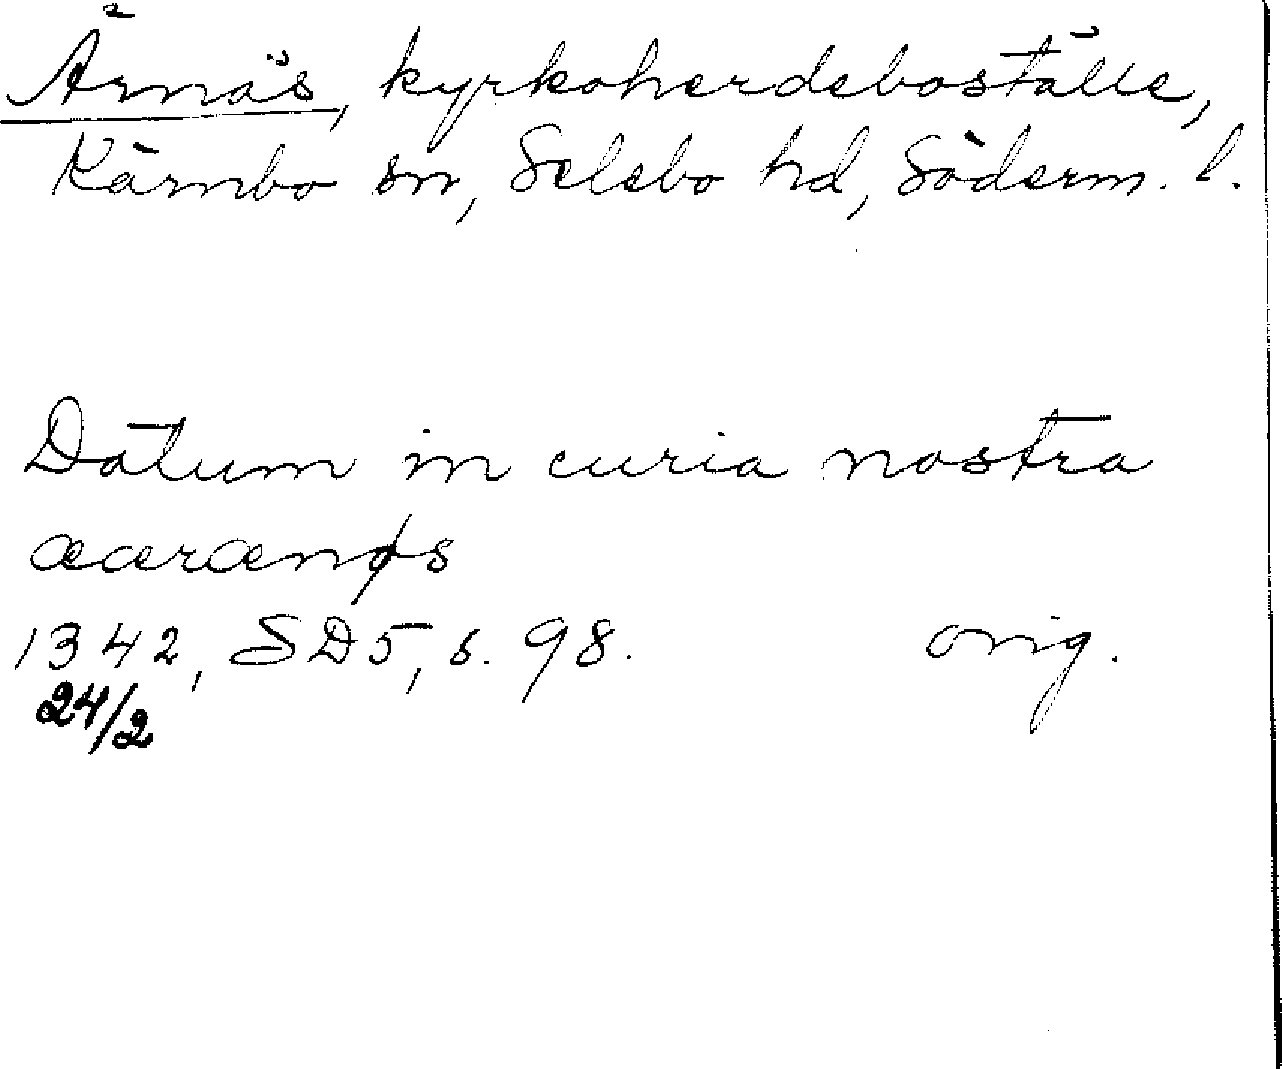 Ärnäs, kyrkoherdeboställe,
Kärnbo sn, Selebo hd, Söderm. l.
Datum in curia nostra
ææærænøs
1342, SD5, s. 98. orig.
24/2